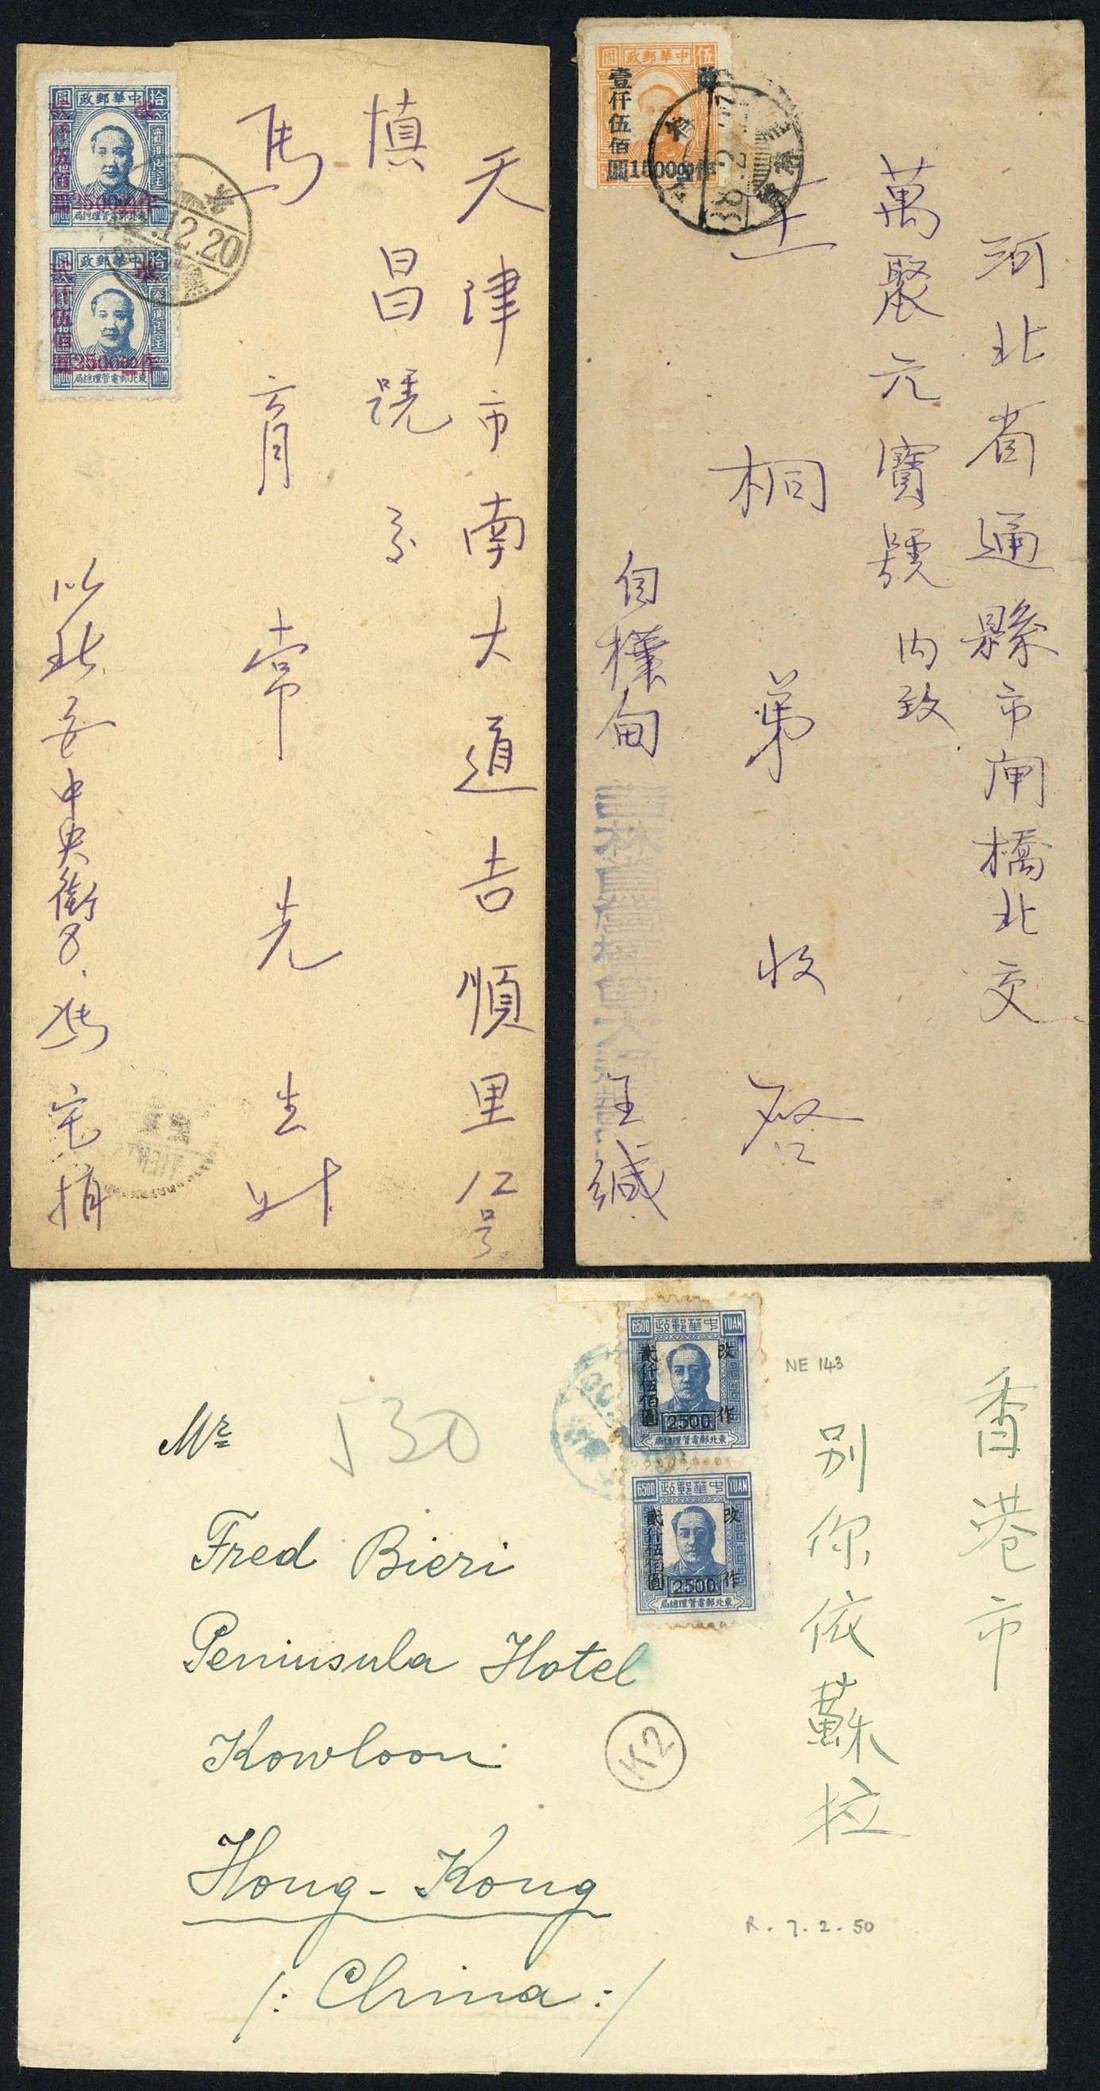 天津市南大道吉順里仁号
慎昌號
馬育常先生
北安中央街8.馮宅捐
中華郵政
拾圓
改作
貳仟伍佰圓
2500.00
東北郵電管理總局
中華郵政
拾圓
改作
貳仟伍佰圓
2500.00
東北郵電管理總局
.12.20
河北省通縣市閘橋北交
萬聚元寶號內致
王桐弟收啓
自樺甸
王緘
中華郵政
伍圓
壹仟伍佰圓1500.00作
38.2.
Mr
530
Fred Bieri
Peninsula Hotel
Kowloon
Hong-Kong
/: China :/
K2
6500 中華郵政 YUAN
改作
貳仟伍佰圓
2500
東北郵電管理總局
6500 中華郵政 YUAN
改作
貳仟伍佰圓
2500
東北郵電管理總局
NE 143
香港市
別你依蘇拉
R. 7.2.50